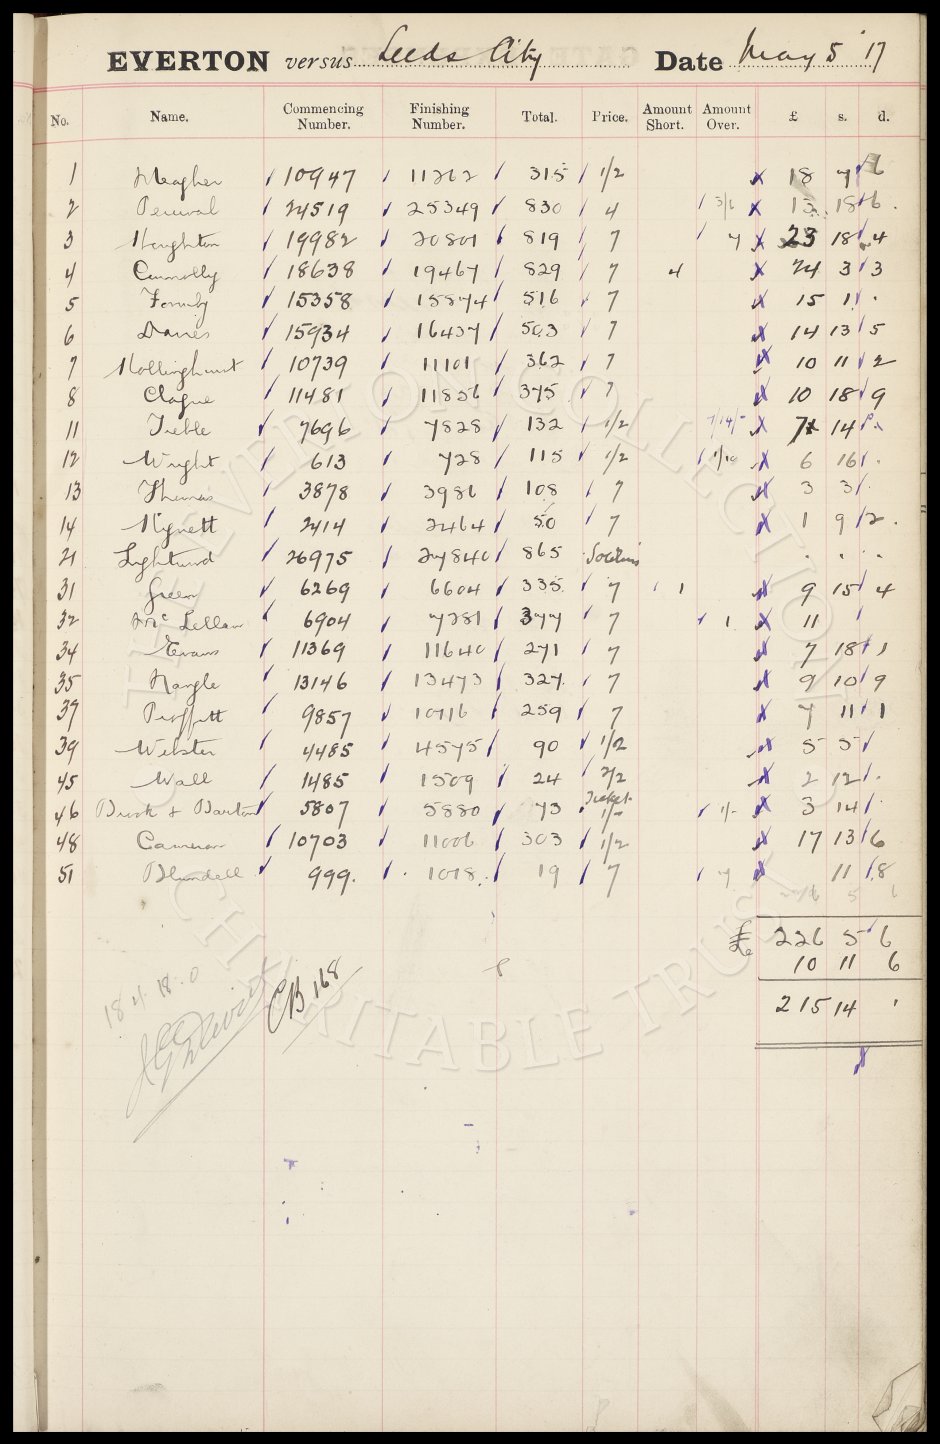 EVERTON versus Leeds City Date May 5 '17
No. Name. Commencing Number. Finishing Number. Total. Price. Amount Short. Amount Over. £ s. d.
1 Meagher 10947 11262 315 1/2 18 7 6
2 Percival 24519 25349 830 4 3/6 13 18 6
3 Houghton 19982 20801 819 7 7 23 18 4
4 Connolly 18638 19467 829 7 4 24 3 3
5 Formby 15358 15874 516 7 15 1 .
6 Davies 15934 16437 503 7 14 13 5
7 Hollinghurst 10739 11101 362 7 10 11 2
8 Clague 11481 11856 375 7 10 18 9
11 Treble 7696 7828 132 1/2 7/14/- 7 14
12 Wright 613 728 115 1/2 1/10 6 16 .
13 Thomas 3878 3986 108 7 3 3 .
14 Hignett 2414 2464 50 7 1 9 2 .
21 Lightwood 26975 27840 865 Soldiers . . .
31 Green 6269 6604 335 7 1 9 15 4
32 McLellan 6904 7281 377 7 1 11
34 Evans 11369 11640 271 7 7 18 1
35 Nangle 13146 13473 327 7 9 10 9
37 Proffitt 9857 10116 259 7 7 11 1
39 Webster 4485 4575 90 1/2 5 5
45 Wall 1485 1509 24 2/2 2 12 .
46 Brook & Barton 5807 5880 73 Ticket 1/- 1/- 3 14 .
48 Cameron 10703 11006 303 1/2 17 13 6
51 Blundell 999. 1018. 19 7 7 11 8
£ 226 5 6
10 11 6
215 14 '
CB 168
THE EVERTON COLLECTION
CHARITABLE TRUST